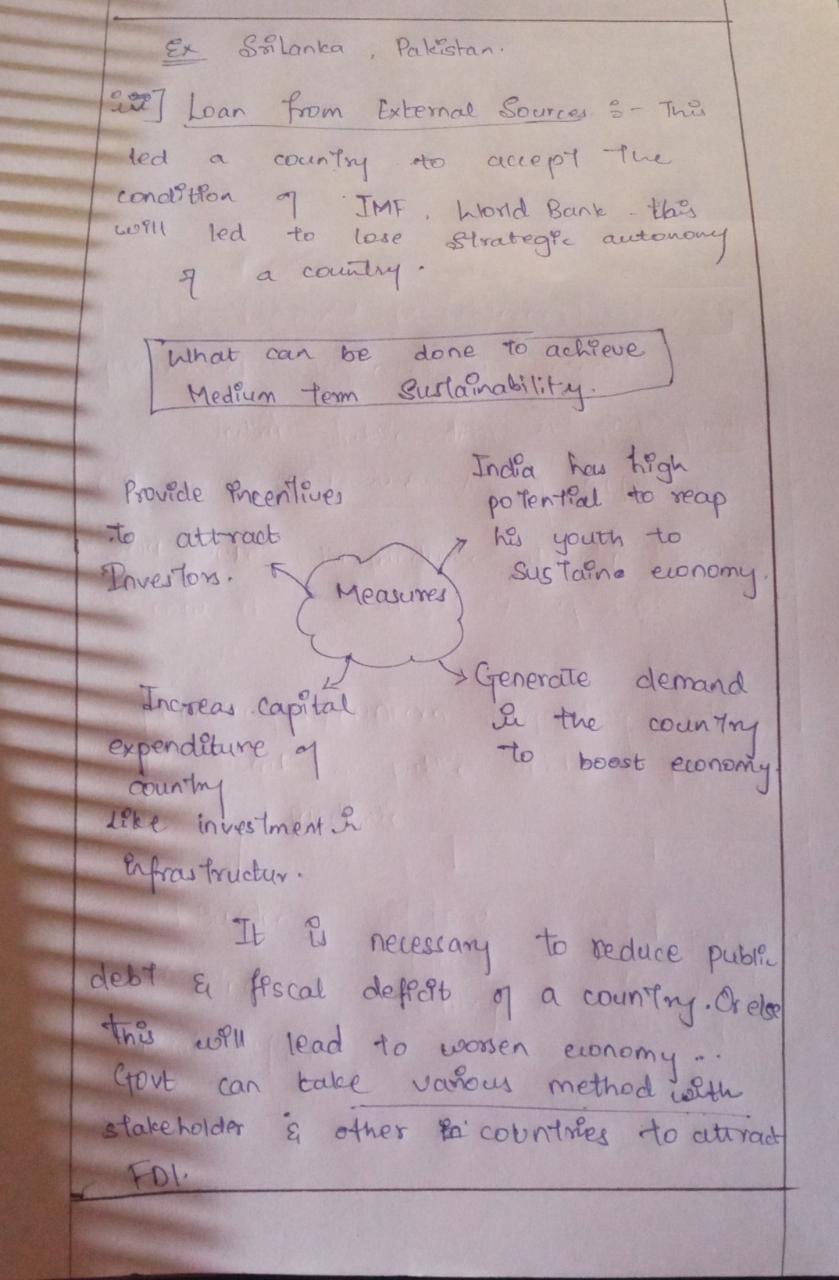 Ex Srilanka, Pakistan.
iii] Loan from External Sources :- This
led a country to accept the
condition of IMF, World Bank. this
will led to lose strategic autonomy
of a country.
What can be done to achieve
Medium term Sustainability.
Provide incentives
to attract
Investors.
India has high
potential to reap
his youth to
sustaine economy.
Measures
Increas capital
expenditure of
country
like investment in
infrastructur.
Generate demand
in the country
to boost economy
It is necessary to reduce public
debt & fiscal deficit of a country. Or else
this will lead to worsen economy...
Govt can take various method with
stakeholder & other countries to attract
FDI.